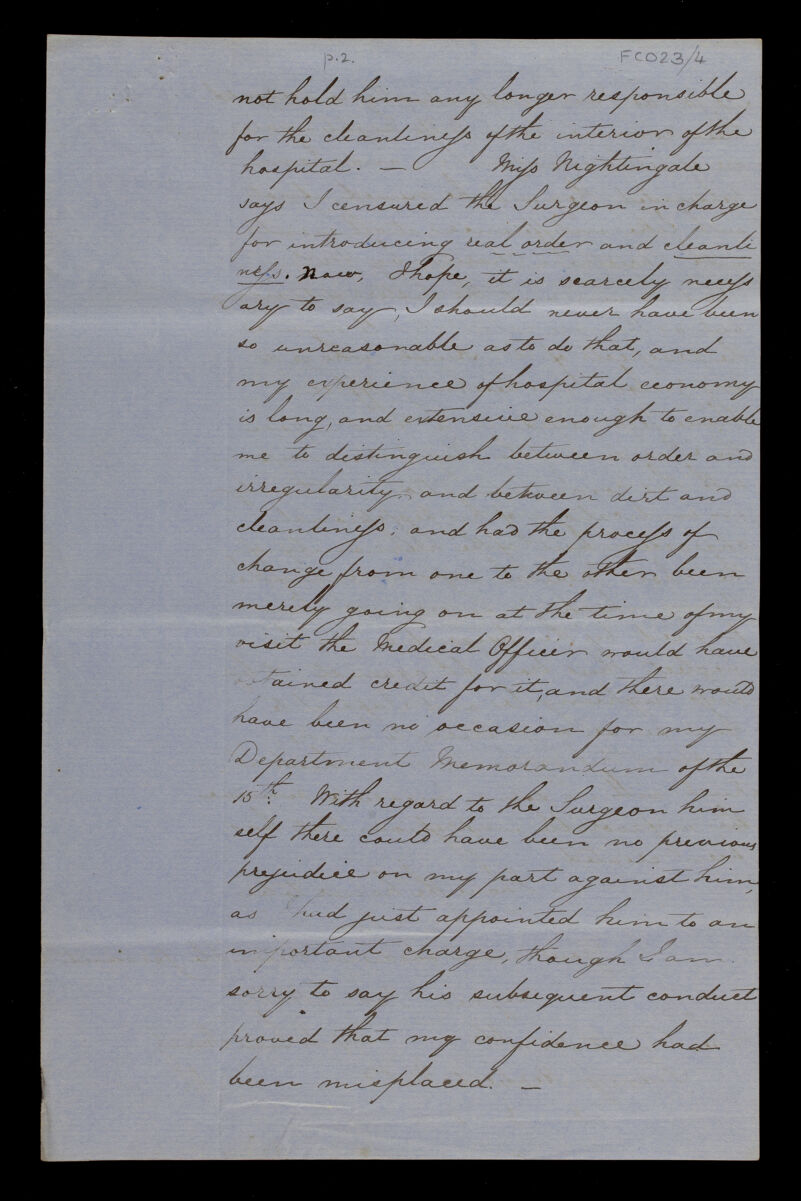 p.2. FC023/4
not hold him any longer responsible
for the cleanliness of the interior of the
hospital. — Miss Nightingale
says I censured the Surgeon in charge
for introducing real order and cleanli
ness. Now, I hope, it is scarcely necess
ary to say, I should never have been
so unreasonable as to do that, and
my experience of hospital economy
is long, and extensive enough to enable
me to distinguish between order and
irregularity and between dirt and
cleanliness; and had the process of
change from one to the other been
merely going on at the time of my
visit the Medical Officer would have
tained credit for it, and there would
have been no occasion for my
Department Memorandum of the
15th. With regard to the Surgeon him
self there could have been no previous
prejudice on my part against him,
as I had just appointed him to an
important charge, though I am
sorry to say his subsequent conduct
proved that my confidence had
been misplaced. —